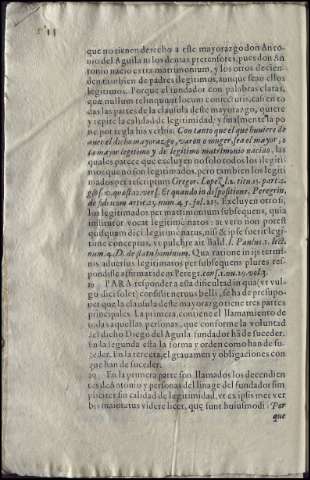 que no tienen derecho a este mayorazgo don Anto-
nio del Aguila ni los demas pretensores, pues don An-
tonio nacio extra matrimonium, y los otros decien-
den tambien de padres ilegitimos, aunque sean ellos
legitimos. Porque el fundador con palabras claras,
quæ nullum relinquunt locum coniecturis, casi en to
das las partes de la clausula deste mayorazgo, quiere
y repite la calidad de legitimidad; y finalmente la po
ne por regla his verbis. Con tanto que el que huuiere de
auer el dicho mayorazgo, varon o muger, sea el mayor, o
la mayor legitimo y de legitimo matrimonio nacido, las
quales parece que excluyen no solo todos los ilegiti-
mos que no son legitimados, pero tambien los legiti
mados per rescriptum Gregor. Lopez
vers. Et quando in dispositione. Peregrin.
de fideicom. artic. 23. num. 4. fol. 223. Excluyen otro si,
los legitimados per matrimonium subsequens, quia
imitatur vocat legitimatos: at vero non potest
quisquam dici legitimè natus, nisi de ipse fuerit legi-
timè conceptus, vt pulchrè ait Bald. l. Paulus. 1. lect.
num. 4. D. de statu hominum. Qua ratione in ijs termi-
nis aduersus legitimatos per subsequens plures res-
pondisse affirmat idem Peregr. cons. 1. nu. 19. vol. 3.
PARA responder a esta dificultad in qua (vt vul-
gò dici solet) consistit neruus belli, se ha de presupo-
ner que la clausula deste mayorazgo tiene tres partes
principales. La primera, contiene el llamamiento de
todas aquellas personas, que conforme la voluntad
del dicho Diego del Aguila fundador hã de suceder.
En la segunda esta la forma y orden como han de su-
ceder. En la tercera, el grauamen y obligaciones con
que han de suceder.
En la primera parte son llamados los decendien
tes de Antonio y personas del linage del fundador sim
pliciter sin calidad de legitimidad, vt ex ipsismet ver
bis manifestius videre licet, quæ sunt huiusmodi: Por
que